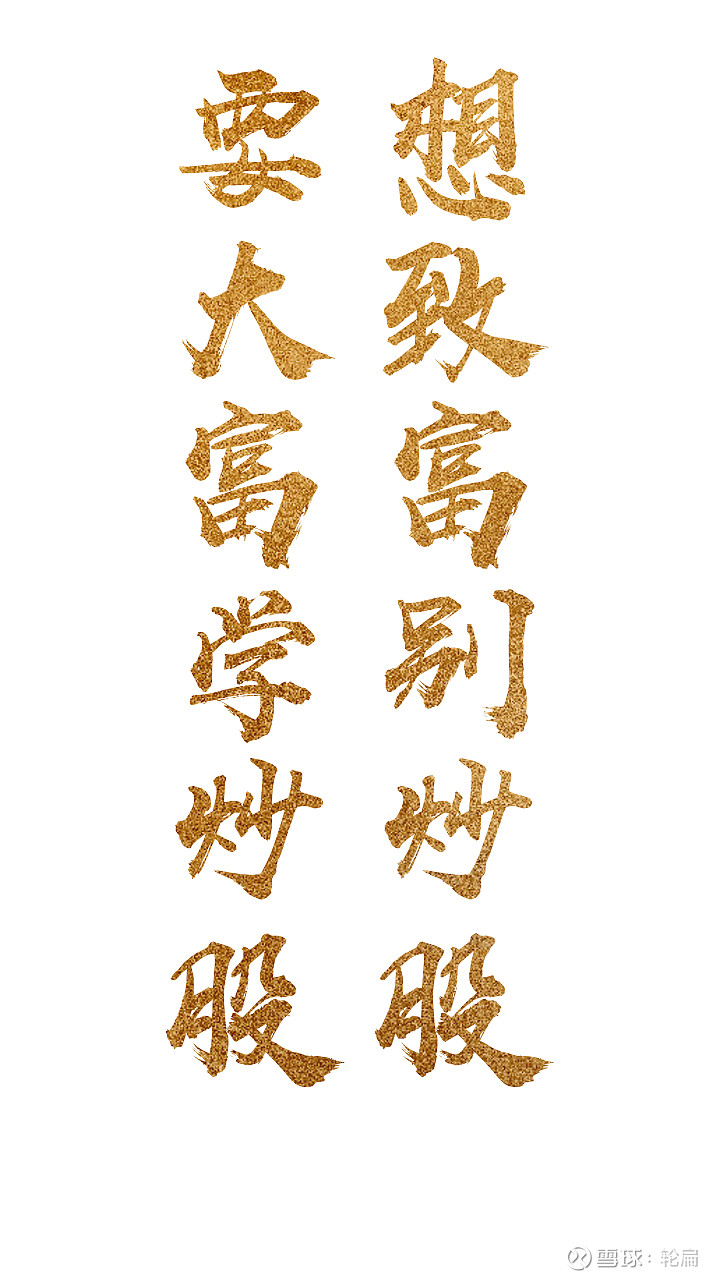 想致富别炒股
要大富学炒股
雪球：轮扁